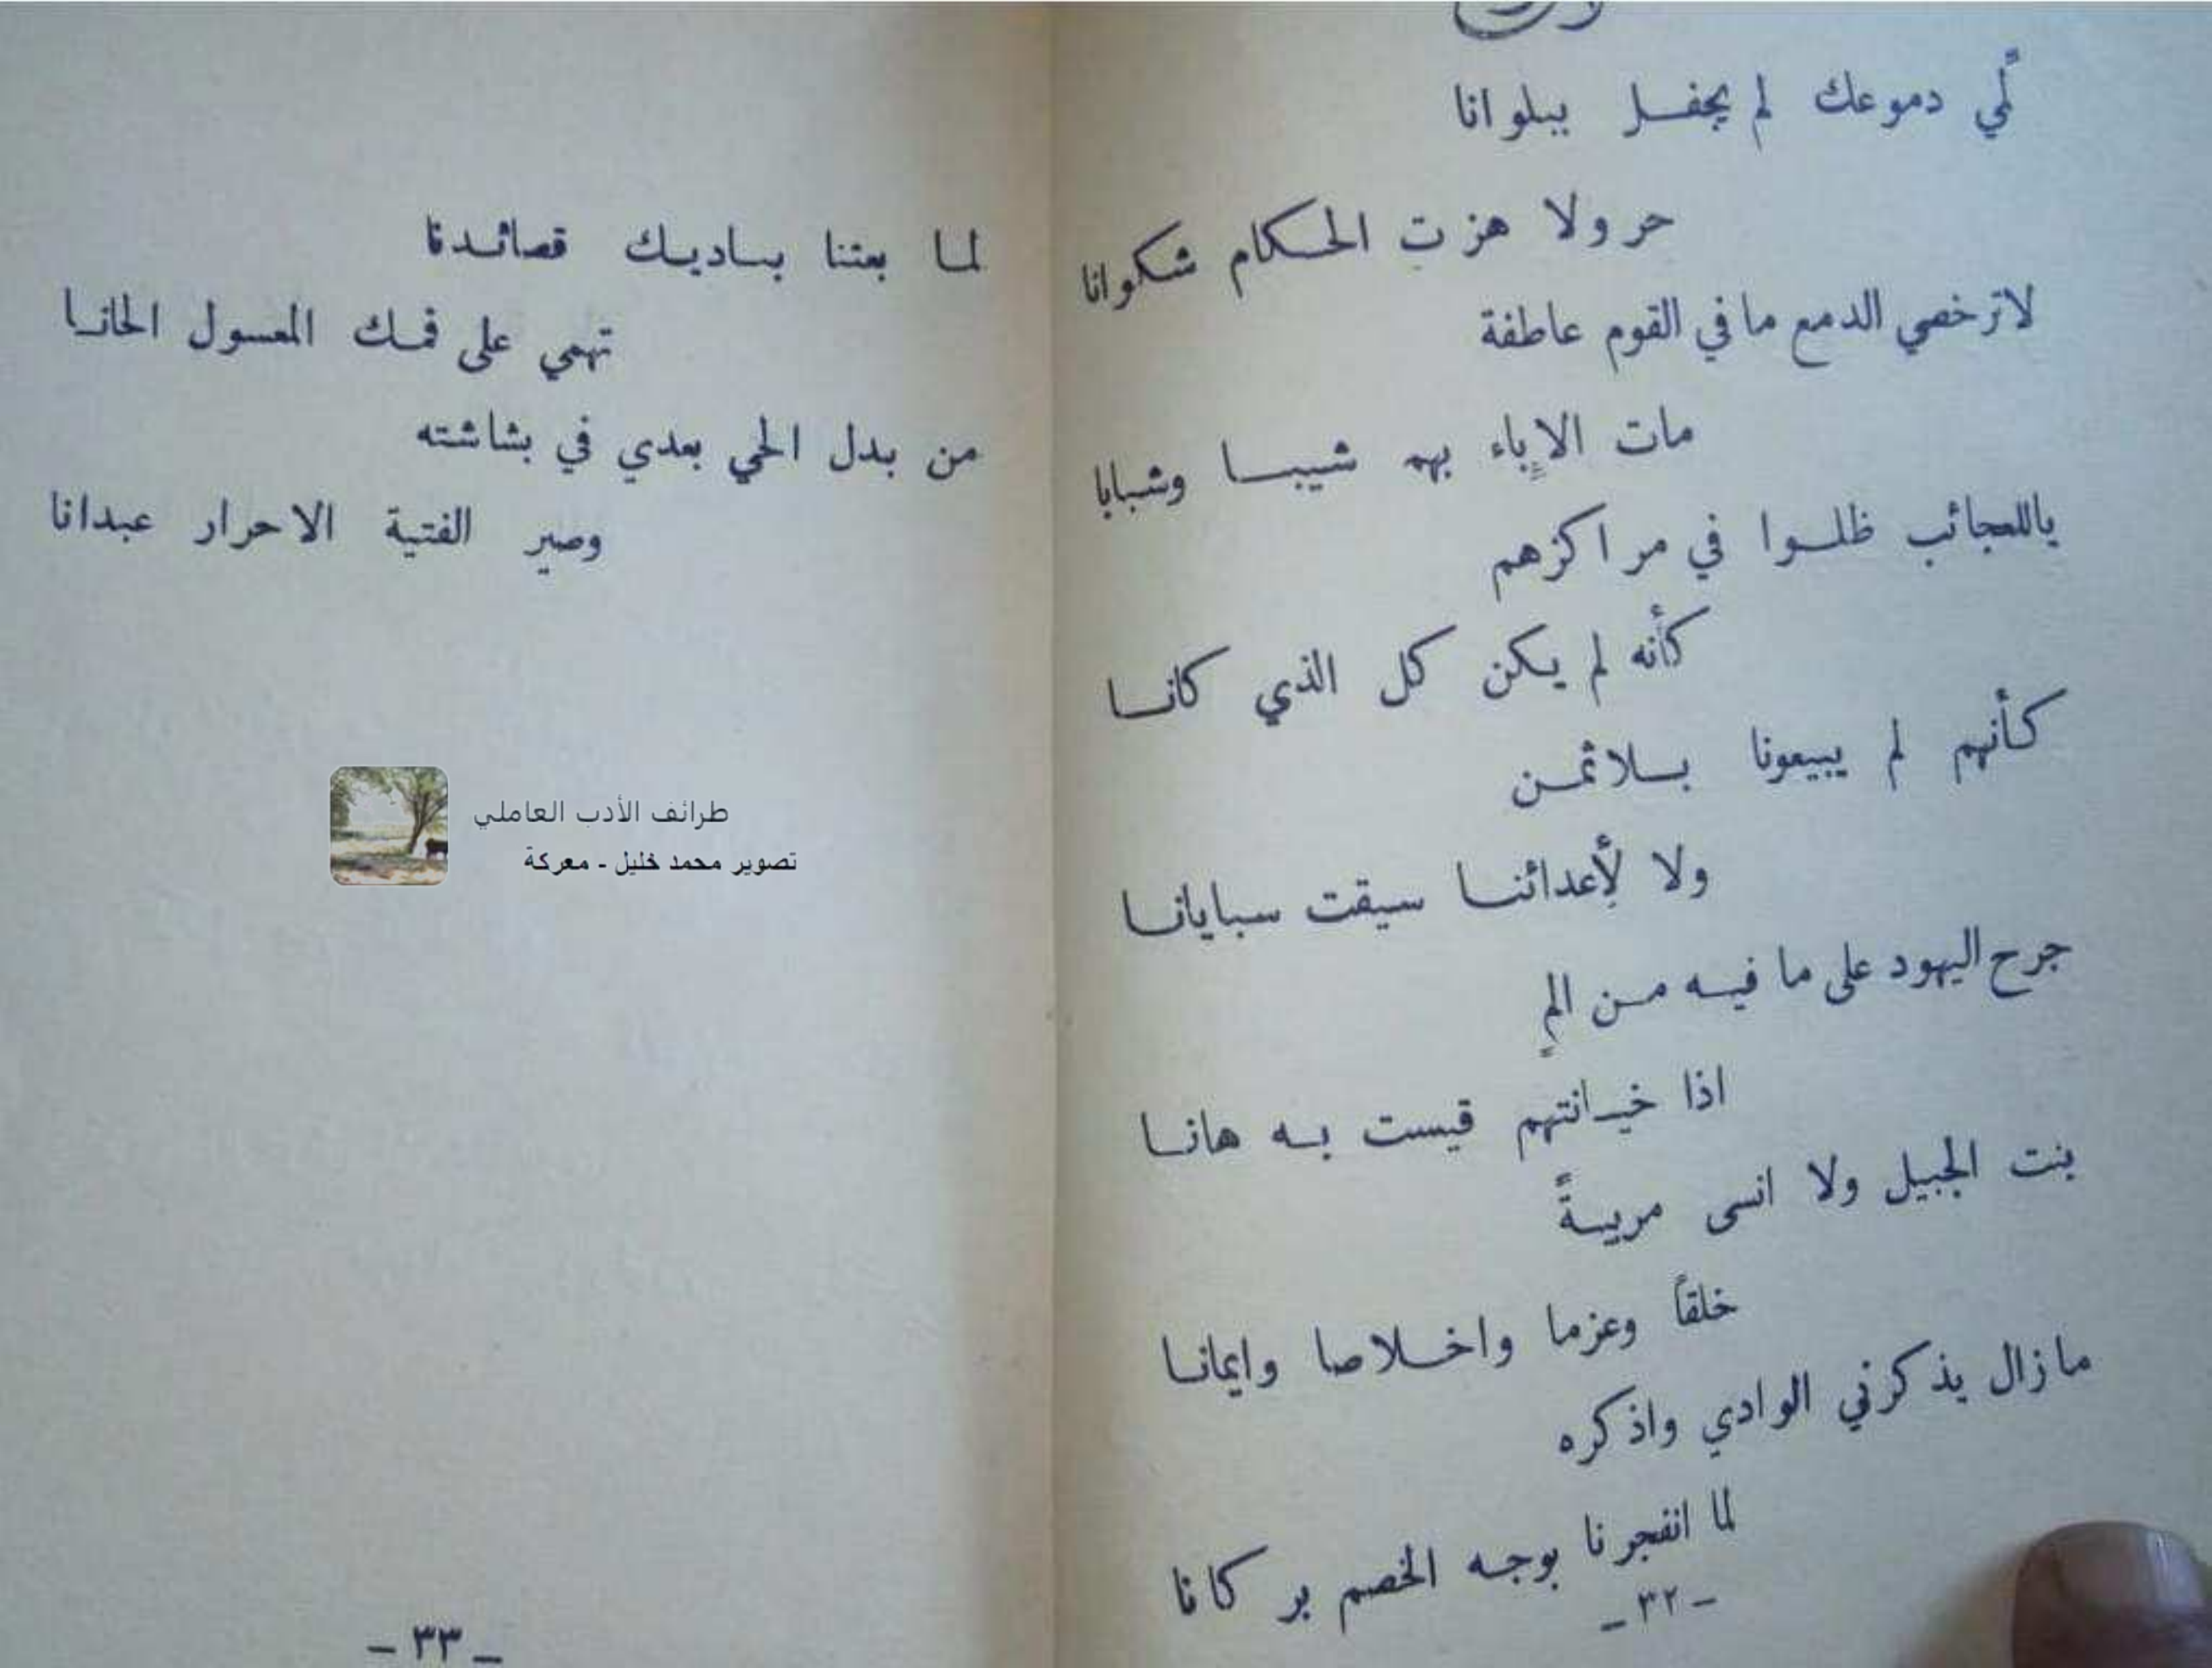 لمّي دموعك لم يحفل ببلوانا
حر ولا هزت الحكام شكوانا
لاترخصي الدمع ما في القوم عاطفة
مات الاٍباء بهم شيبا وشبابا
ياللعجائب ظلوا في مراكزهم
كأنه لم يكن كل الذي كانا
كأنهم لم يبيعونا بلا ثمن
ولا لأعدائنا سيقت سبايانا
جرح اليهود على ما فيه من المٍ
اذا خيانتهم قيست به هانا
بنت الجبيل ولا انسى مربيةً
خلقاً وعزما واخلاصا وايمانا
مازال يذكرني الوادي واذكره
لما انفجرنا بوجه الخصم بركانا
- ٣٢ -
لما بعثنا بساديك قصائدنا
تهمي على فمك المعسول الحانا
من بدل الحي بعدي في بشاشته
وصير الفتية الاحرار عبدانا
طرائف الأدب العاملي
تصوير محمد خليل - معركة
- ٣٣ -